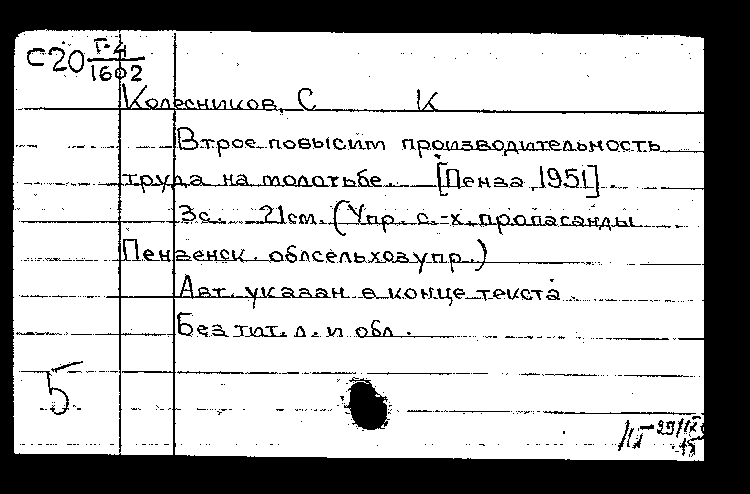 С20 Г-4
1602
Колесников, С К
Втрое повысим производительность
труда на молотьбе. [Пенза, 1951].
3с. 21см. (Упр. с.-х. пропаганды
Пензенск. облсельхозупр.)
Авт. указан в конце текста.
Без тит. л. и обл.
5